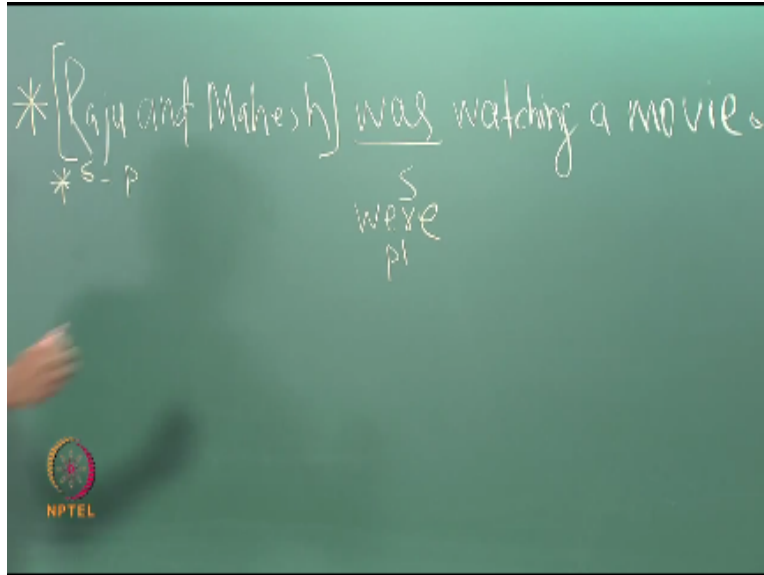 *[Raju and Mahesh] was watching a movie.
* s - p
s
were
pl
NPTEL